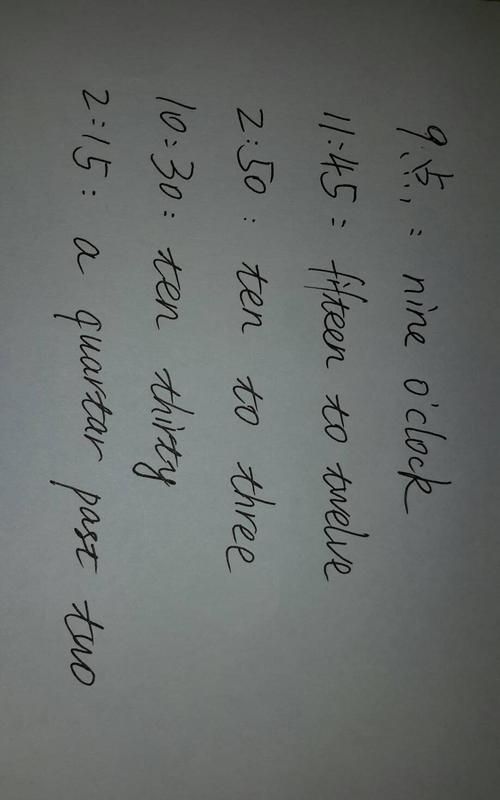 9点: nine o'clock
11:45: fifteen to twelve
2:50: ten to three
10:30: ten thirty
2:15: a quartar past two